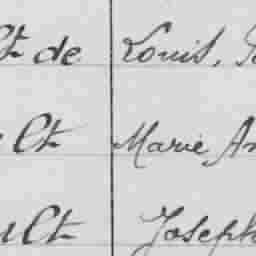 Ct de Louis,
Ct Marie
Ct Joseph